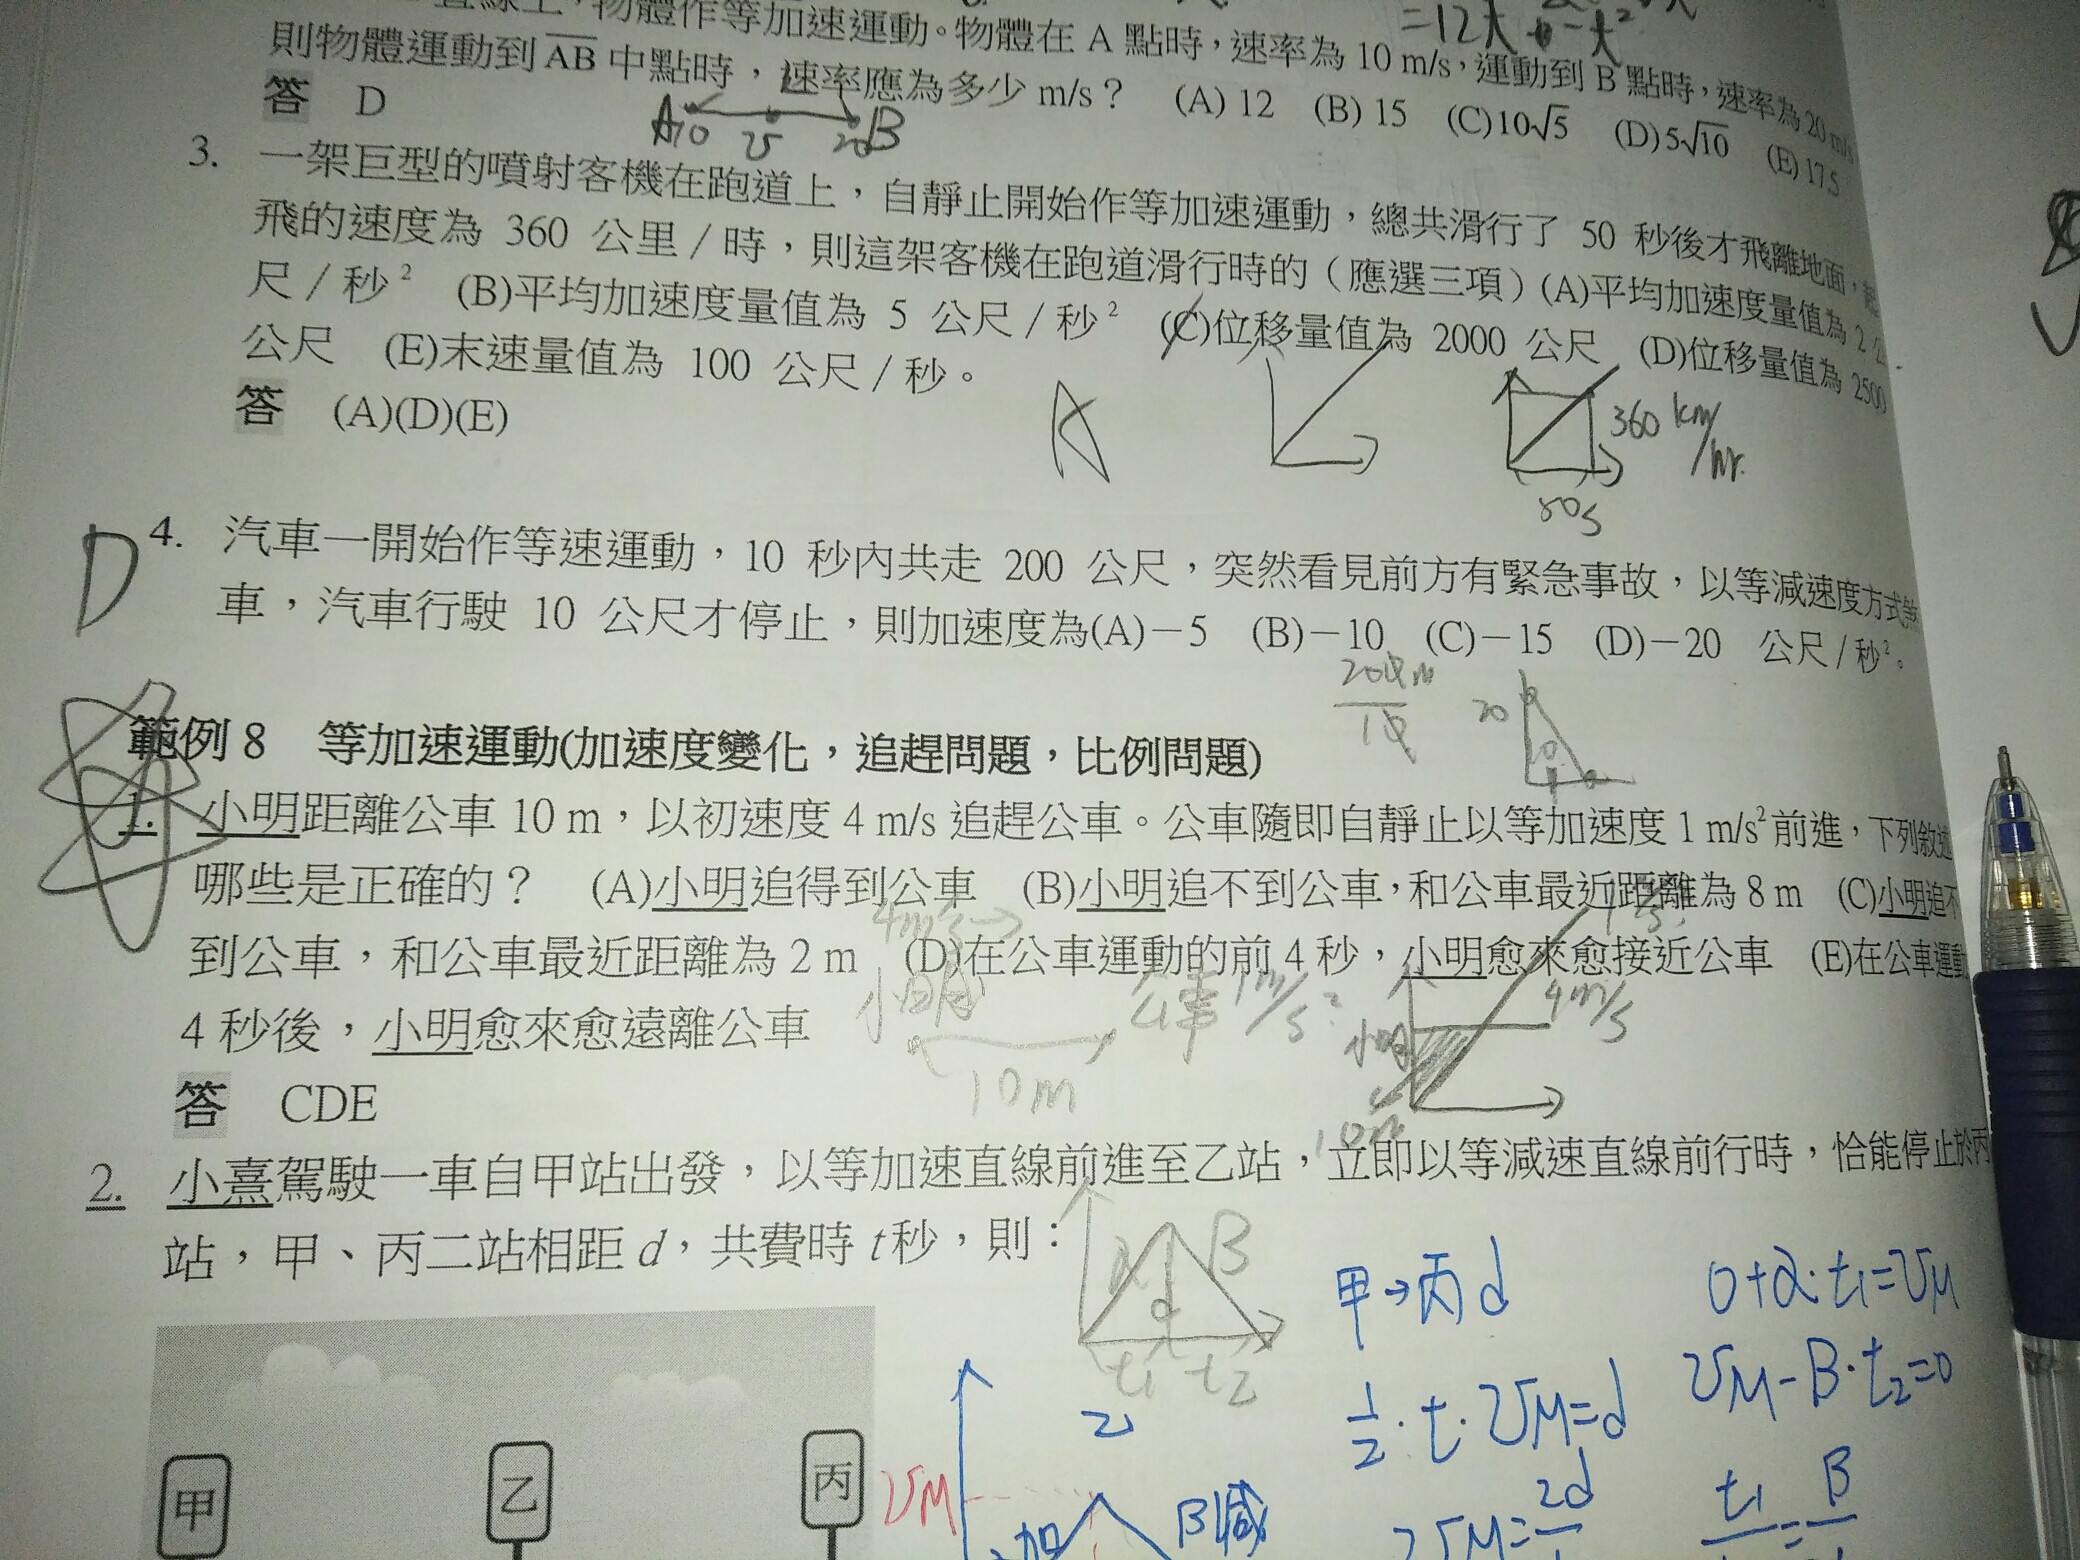 直線上，物體作等加速運動。物體在 A 點時，速率為 10 m/s，運動到 B 點時，速率為 20 m/s
=12t
則物體運動到 AB 中點時，速率應為多少 m/s？ (A) 12 (B) 15 (C)10√5 (D)5√10 (E) 17.5
答 D
A 10 20 B
3. 一架巨型的噴射客機在跑道上，自靜止開始作等加速運動，總共滑行了 50 秒後才飛離地面，
飛的速度為 360 公里／時，則這架客機在跑道滑行時的（應選三項）(A)平均加速度量值為 2 公
尺／秒² (B)平均加速度量值為 5 公尺／秒² (C)位移量值為 2000 公尺 (D)位移量值為 2500
公尺 (E)末速量值為 100 公尺／秒。
答 (A)(D)(E)
A
360 km/hr.
50s
D
4. 汽車一開始作等速運動，10 秒內共走 200 公尺，突然看見前方有緊急事故，以等減速度方式煞
車，汽車行駛 10 公尺才停止，則加速度為(A)－5 (B)－10 (C)－15 (D)－20 公尺／秒²。
200m
10
20
10
範例 8 等加速運動(加速度變化，追趕問題，比例問題)
1. 小明距離公車 10 m，以初速度 4 m/s 追趕公車。公車隨即自靜止以等加速度 1 m/s² 前進，下列敘述
哪些是正確的？ (A)小明追得到公車 (B)小明追不到公車，和公車最近距離為 8 m (C)小明追不
到公車，和公車最近距離為 2 m (D)在公車運動的前 4 秒，小明愈來愈接近公車 (E)在公車運動
4 秒後，小明愈來愈遠離公車
4m/s→
小明 公車 1m/s²
10m
小明 4m/s
10m
答 CDE
2. 小熹駕駛一車自甲站出發，以等加速直線前進至乙站，立即以等減速直線前行時，恰能停止於丙
站，甲、丙二站相距 d，共費時 t 秒，則：
α d β
t₁ t₂
甲→丙 d
0+α·t₁=VM
½·t·VM=d
VM−β·t₂=0
乙
甲 乙 丙
VM
加 β減
VM=2d
t₁ = β